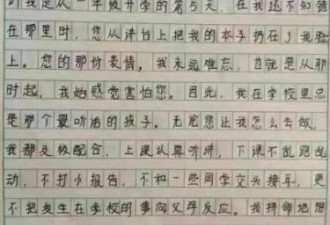 的我是从一年级开学的第5天，在我还不知错
在哪里时，您从讲台上把我的本子扔在了我脸
上。您的那份表情，我永远难忘，也就是从那
时起，我始感觉害怕您。因此，我在学校里总
是那个最听话的孩子。无论您让我怎么去做，
我都积极配合，上课认真听讲，下课不乱跑乱
动，不打小报告，不和一些同学交头接耳，更
不把发生在学校的事向父母反应。我拼命地